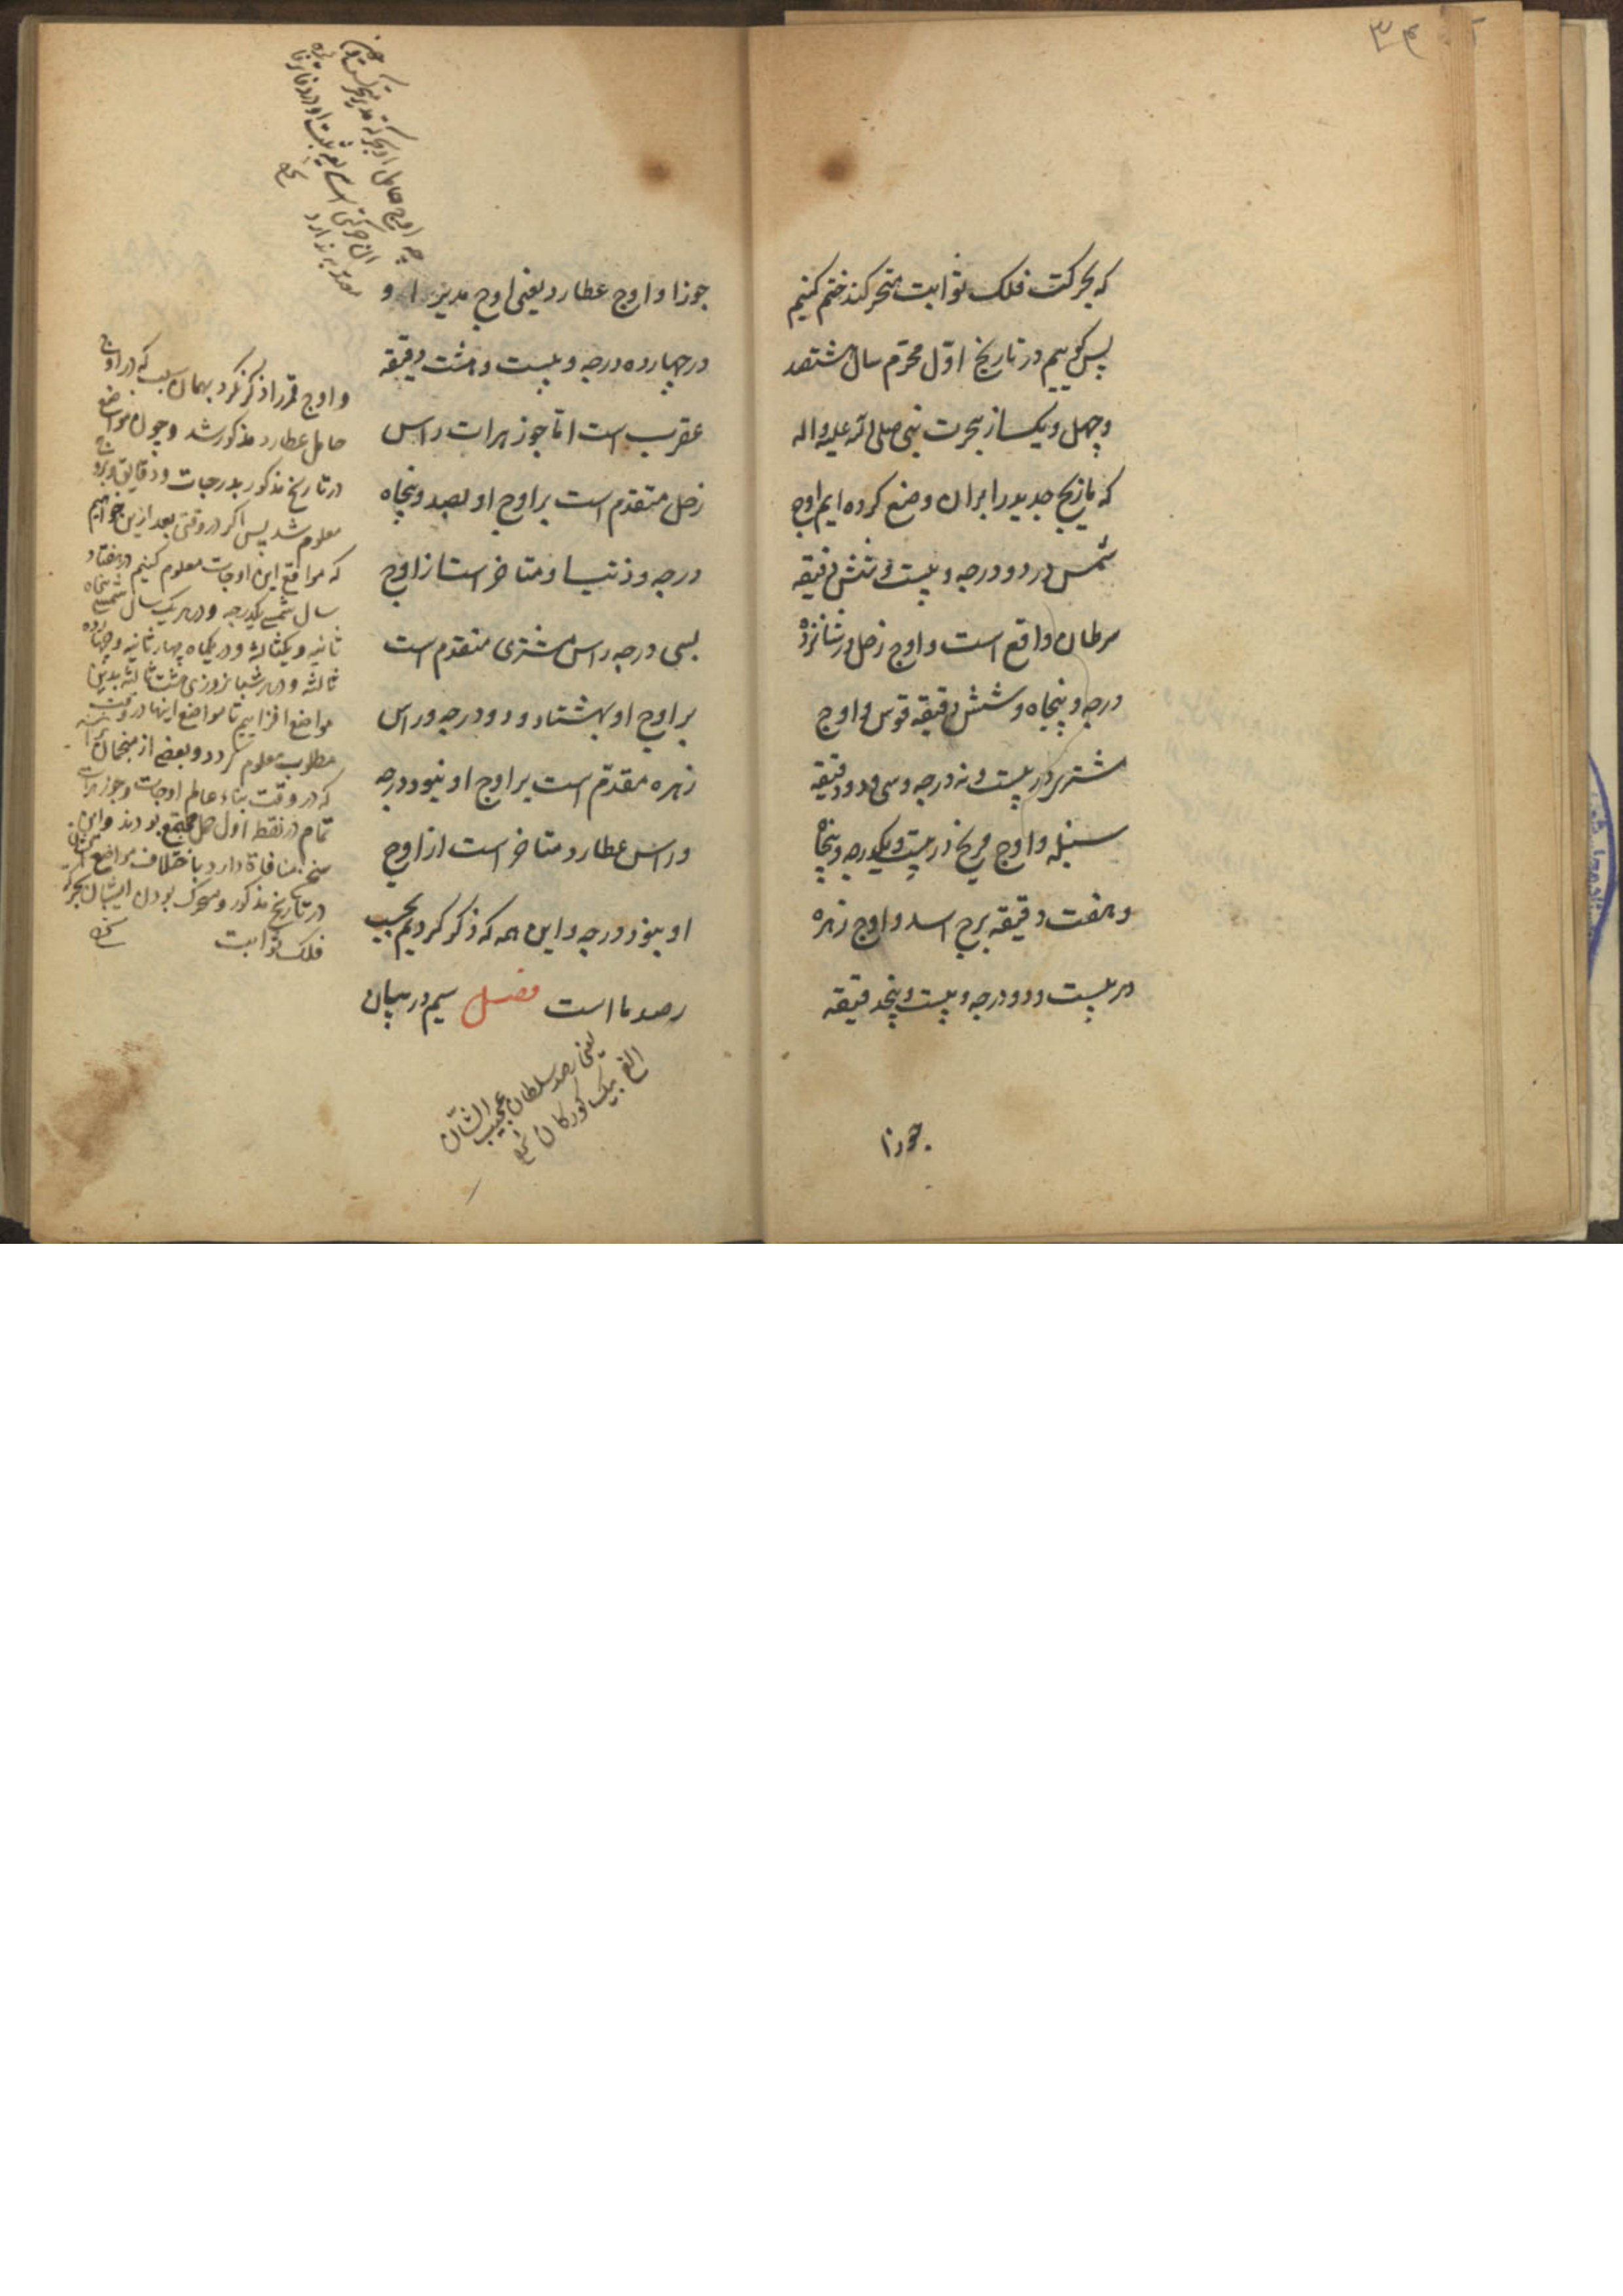 ۳۴
که بحرکت فلک ثوابت متحرکند ختم کنیم
پس گوییم در تاریخ اول محرم سال هشتصد
و چهل و یک از هجرت نبی صلی الله علیه و اله
که ما زیج جدید را بران وضع کرده ایم اوج
شمس در دو درجه و بیست و شش دقیقه
سرطان واقع است و اوج زحل در شانزده
درجه و پنجاه و شش دقیقه قوس و اوج
مشتری در بیست و نه درجه و سی و دو دقیقه
سنبله و اوج مریخ در بیست و یکدرجه و پنجاه
و هفت دقیقه برج اسد و اوج زهره
در بیست و دو درجه و بیست و پنجدقیقه
جوزا
جوزا و اوج عطارد یعنی اوج مدیر او
در چهارده درجه و بیست و هشت دقیقه
عقرب است اما جوزهرات راس
زحل متقدم است بر اوج او بصد و پنجاه
درجه و ذنب او متاخر است از اوج
بسی درجه راس مشتری متقدم است
بر اوج او بهشتاد و دو درجه و راس
زهره مقدم است بر اوج او بنود درجه
و راس عطارد متاخر است از اوج
او بنود درجه و این همه که ذکر کردیم بحسب
رصد ما است فصل سیم در بیان
یعنی رصد سلطان عجیب الشان
الغ بیک کورکان
و اوج قمر را ذکر نکرد بهمان سبب که در اوج
حامل عطارد مذکور شد و چون مواضع
در تاریخ مذکور بدرجات و دقایق و بروج
معلوم شد پس اکر در وقتی بعد ازین خواهیم
که مواقع این اوجات معلوم کنیم در هفتاد
سال شمسی یکدرجه و در هر یک سال شمسی پنجاه
ثانیه و یکثالثه و در یکماه چهار ثانیه و
ثالثه و در هر شبانروزی هشت ثالثه بدین
مواضع افزاییم تا مواضع اینها در وقت
مطلوب معلوم کردد و بعضی از منجمان
که در وقت بناء عالم اوجات و جوزهرات
تمام در نقطه اول حمل مجتمع بودند و این
سخن منافاة دارد باختلاف مواضع
در تاریخ مذکور و متحرک بودن ایشان بحرکه
فلک ثوابت